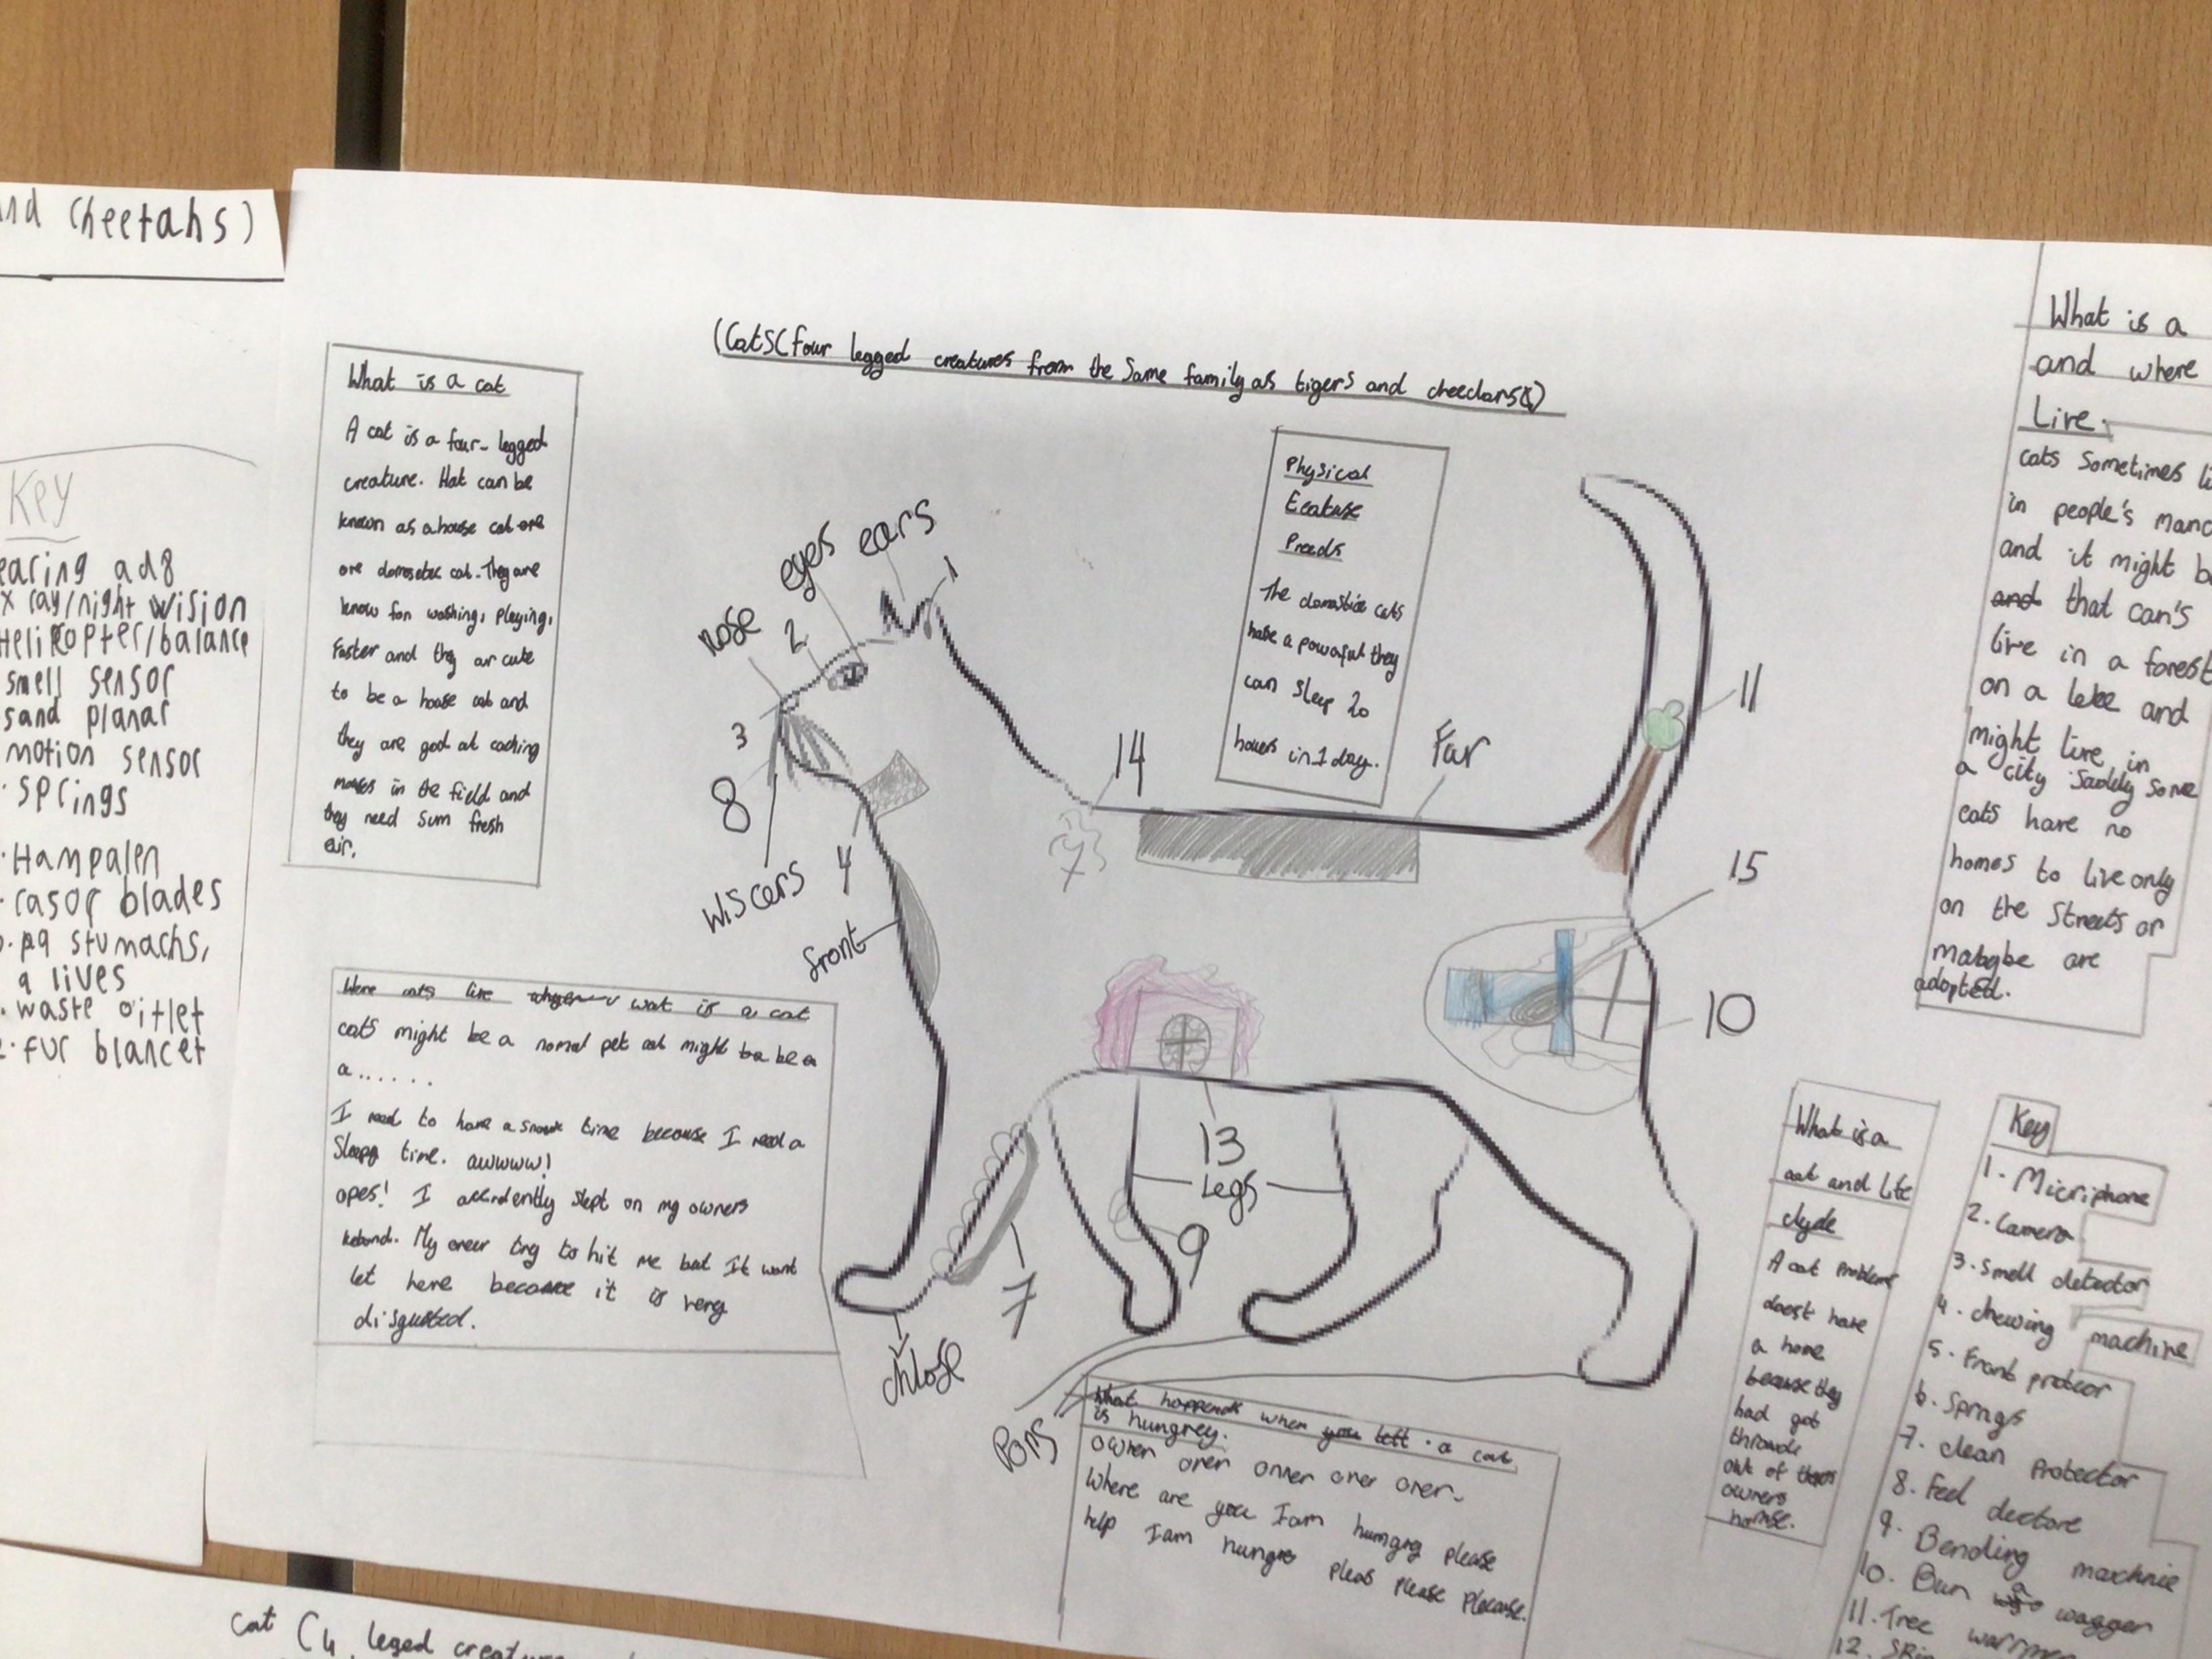 and Cheetahs)
Key
earing ad8
x ray/night wision
Helikopter/balance
smell sensor
sand planar
motion sensor
springs
Hampalen
rasor blades
stumachs,
9 lives
waste oitlet
fur blancet
(Cats(four legged creatures from the same family as tigers and cheedars)
What is a cat
A cat is a four-legged
creature. Hat can be
known as a house cat ore
ore domosetec cat. They are
know for washing, playing,
Faster and they ar cute
to be a house cat and
they are good at caching
in the field and
they need sum fresh
air.
Physical
Eeatuse
Preeds
The domastice cats
have a powoful they
can sleep 20
houers in 1 day.
nose
eyes
ears
1
2
3
8
wiscers
4
front
14
Fur
11
15
10
13
Legs
9
7
7
Here cats live wat is a cat
cats might be a nomal pet cat might be a
a......
I need to have a time because I need a
Sleepy time. awwww!
opes! I accidently slept on my owners
My oner try to hit me but It wont
let here because it is very
disgusted.
What happends when you left. a cat
is hungrey.
owner oner onner oner oner
Where are you I am humgry please
help I am hungre pleas please please.
What is a
and where
Live.
cats sometimes li
in people's manc
and it might b
and that can's
live in a forest
on a lake and
might live in
a city Saddly some
cats have no
homes to live only
on the Streets or
mabgbe are
adopted.
What is a
cat and life
clyde
A cat
doest have
a home
because they
had got
throwde
out of
owners
hornse.
Key
1. Micriphone
2. Camera
3. Smell detector
4. chewing machine
5. Front protecor
6. Sprngs
7. clean protector
8. Feel dectore
9. Bending maxhnie
10. Bun a wagger
11. Tree
12.
cat (4 leged